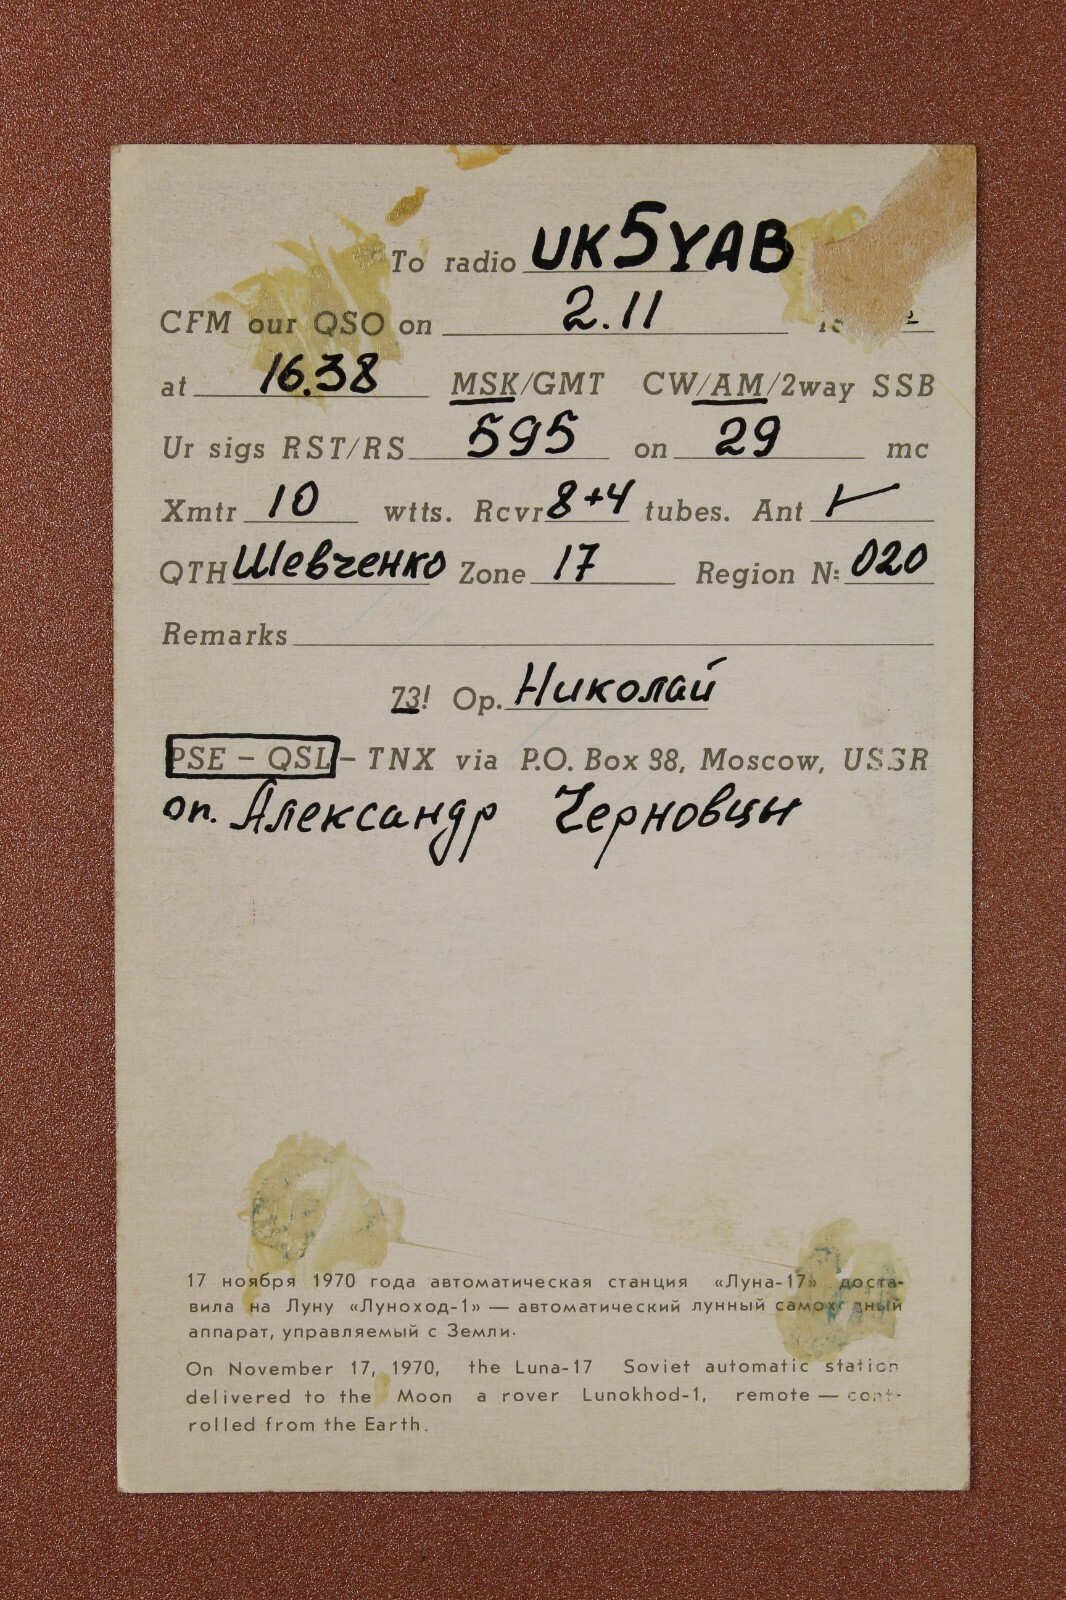 To radio UK5YAB
CFM our QSO on 2.11
at 16.38 MSK/GMT CW/AM/2way SSB
Ur sigs RST/RS 595 on 29 mc
Xmtr 10 wtts. Rcvr 8+4 tubes. Ant
QTH Шевченко Zone 17 Region N: 020
Remarks
73! Op. Николай
PSE - QSL - TNX via P.O. Box 88, Moscow, USSR
оп. Александр Черновцы
17 ноября 1970 года автоматическая станция «Луна-17» доста-
вила на Луну «Луноход-1» — автоматический лунный самоходный
аппарат, управляемый с Земли.
On November 17, 1970, the Luna-17 Soviet automatic station
delivered to the Moon a rover Lunokhod-1, remote — cont-
rolled from the Earth.